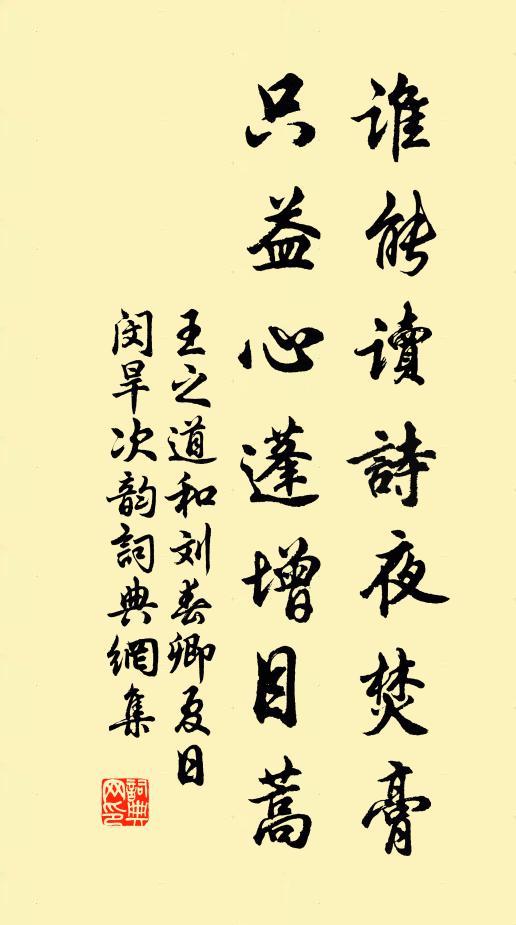 谁能讀詩夜焚膏
只益心蓬增目蒿
王之道和刘春卿夏日
闵旱次韵詞典網集
詞典
网印